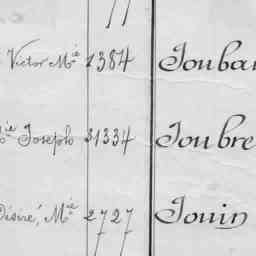 Victor Mie 1384 Jouba
Mie Joseph 31334 Joubre
Désiré, Mie 2727 Jouin